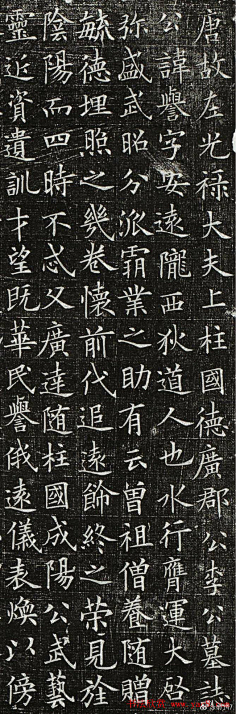 唐故左光禄大夫上柱國德廣郡公李公墓誌
公諱譽字安遠隴西狄道人也水行膺運大啓
弥盛武昭分派霸業之助有云曽祖僧養随贈
毓德埋照之幾卷懷前代追遠飾終之荣見於
陰陽而四時不忒父廣達随柱國成陽公武藝
靈近資遺訓才望既華民譽俄遠儀表煥以傍